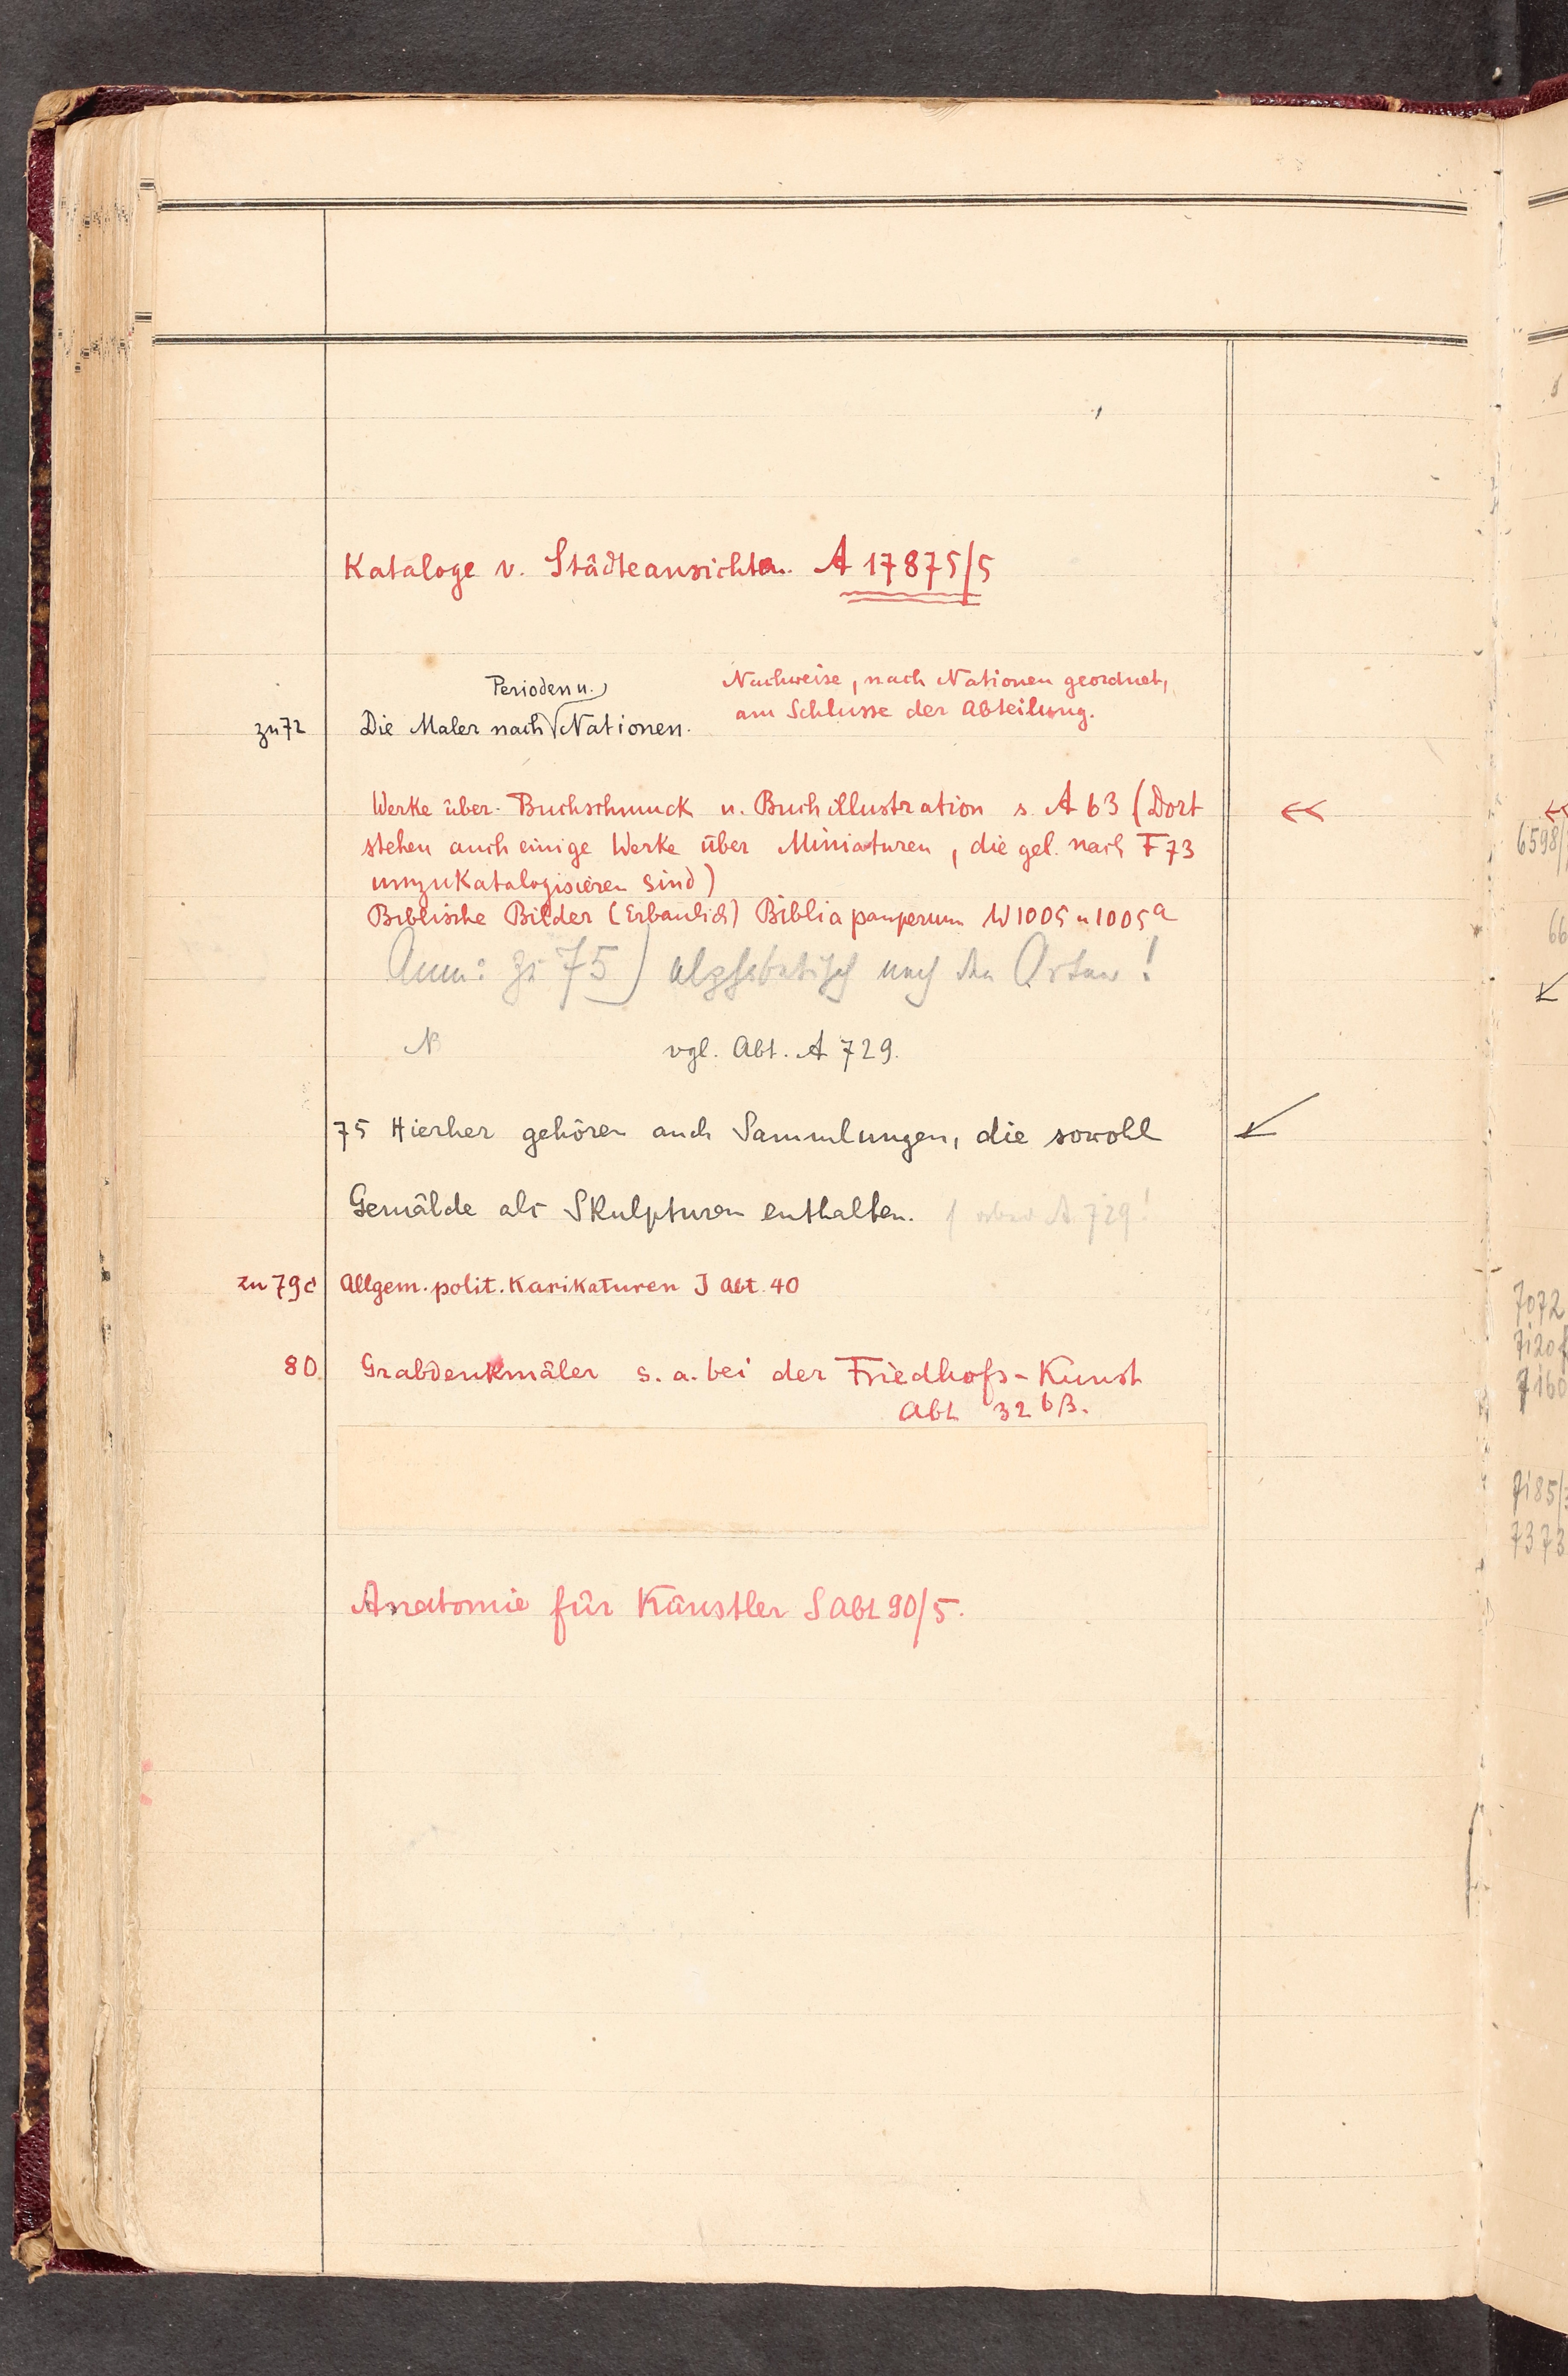 Kataloge v. Städteansichten. A 17875/5
Nachweise, nach Nationen geordnet,
am Schlusse der Abteilung.
Periodenu.
zu 72 Die Maler nach Nationen.
Werke über Buchschmuck u. Buchillustration s. A 63 (Dort
stehen auch einige Werke über Miniaturen, die gel. nach F 73
umzukatalogisieren sind)
Biblische Bilder (Erbaulich) Biblia pauperum W 1005 u 1005a
Anm: zu 75) alphabetisch nach den Orten!
N
vgl. Abt. A 729.
75 Hierher gehören auch Sammlungen, die sowohl
Gemälde als Skulpturen enthalten. A 729!
zu 79d Allgem. polit. Karikaturen J Abt. 40
80 Grabdenkmäler s. a. bei der Friedhofs-Kunst
Abt 32 bβ.
Anatomie für Künstler S Abt 90/5.
6598/
66
7072
7120f
7160
7185/
7373